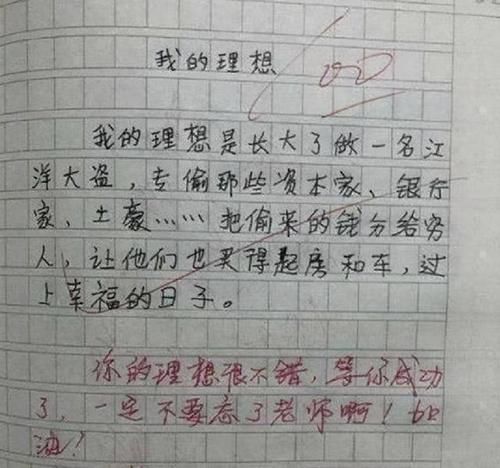 我的理想
我的理想是长大了做一名江
洋大盗，专偷那些资本家、银行
家、土豪……把偷来的钱分给穷
人，让他们也买得起房和车，过
上幸福的日子。
你的理想很不错，等你成功
了，一定不要忘了老师啊！加
油！